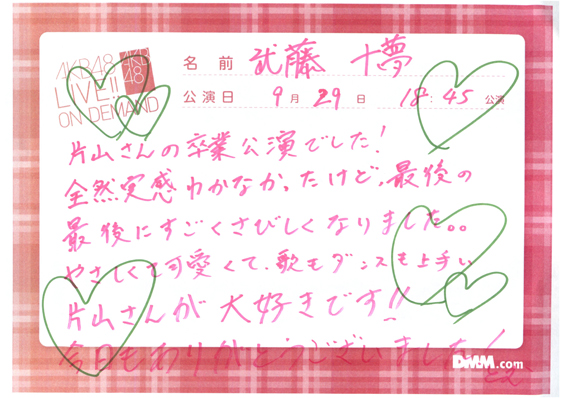 AKB48
LIVE!!
ON DEMAND
AKB
48
名前 武藤 十夢
公演日 9月 29日 18:45 公演
片山さんの卒業公演でした!
全然実感わかなかったけど、最後の
最後にすごくさびしくなりました。。
やさしくて可愛くて、歌もダンスも上手い
片山さんが大好きです!!
今日もありがとうございました!
とむ
DMM.com